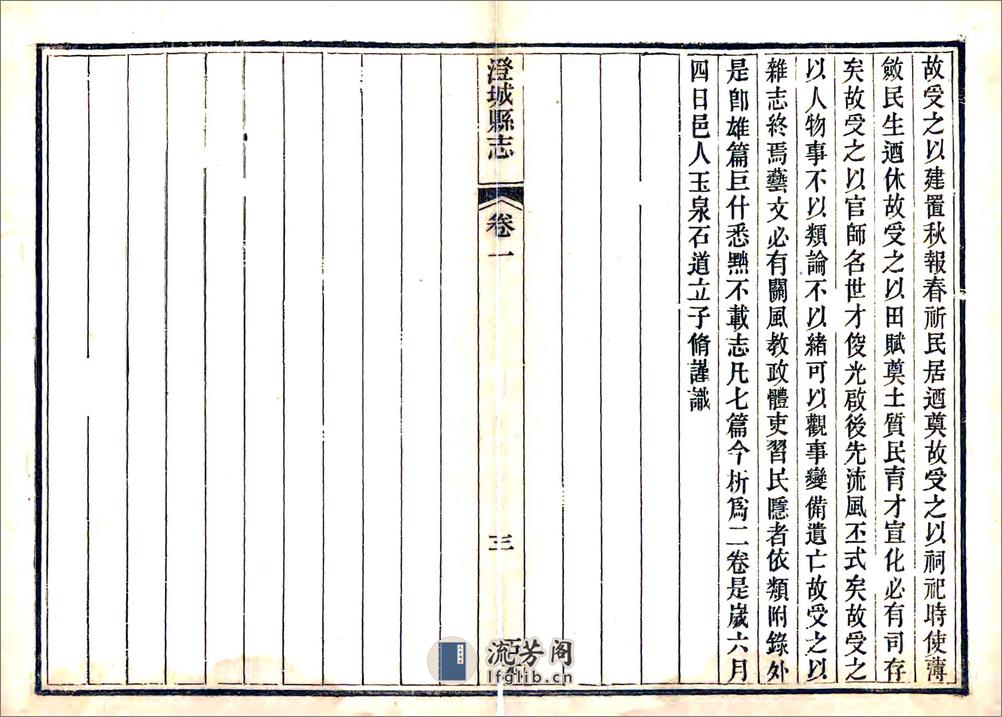 故受之以建置秋報春祈民居迺奠故受之以祠祀時使薄
斂民生迺休故受之以田賦奠土質民育才宣化必有司存
矣故受之以官師名世才俊光啟後先流風丕式矣故受之
以人物事不以類論不以緒可以觀事變備遺亡故受之以
雜志終焉藝文必有關風教政體吏習民隱者依類附錄外
是卽雄篇巨什悉黜不載志凡七篇今析爲二卷是歲六月
四日邑人玉泉石道立子脩謹識
澄城縣志
卷一
三
流芳阁
lfglib.cn